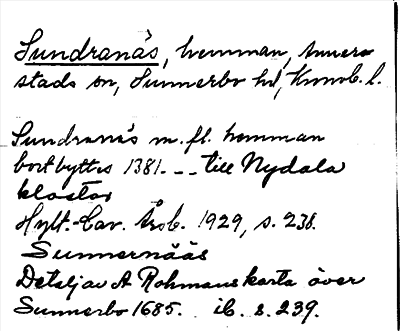 Sundranäs, hemman, Annerstads sn, Sunnerbo hd, Kronob. l.
Sundranäs m. fl. hemman
bortbyttes 1381. -- till Nydala
kloster
Hylt.-Cav. Årsb. 1929, s. 238.
Sunnernääs
Detalj av A Rohmans karta över
Sunnerbo 1685. ib. s. 239.